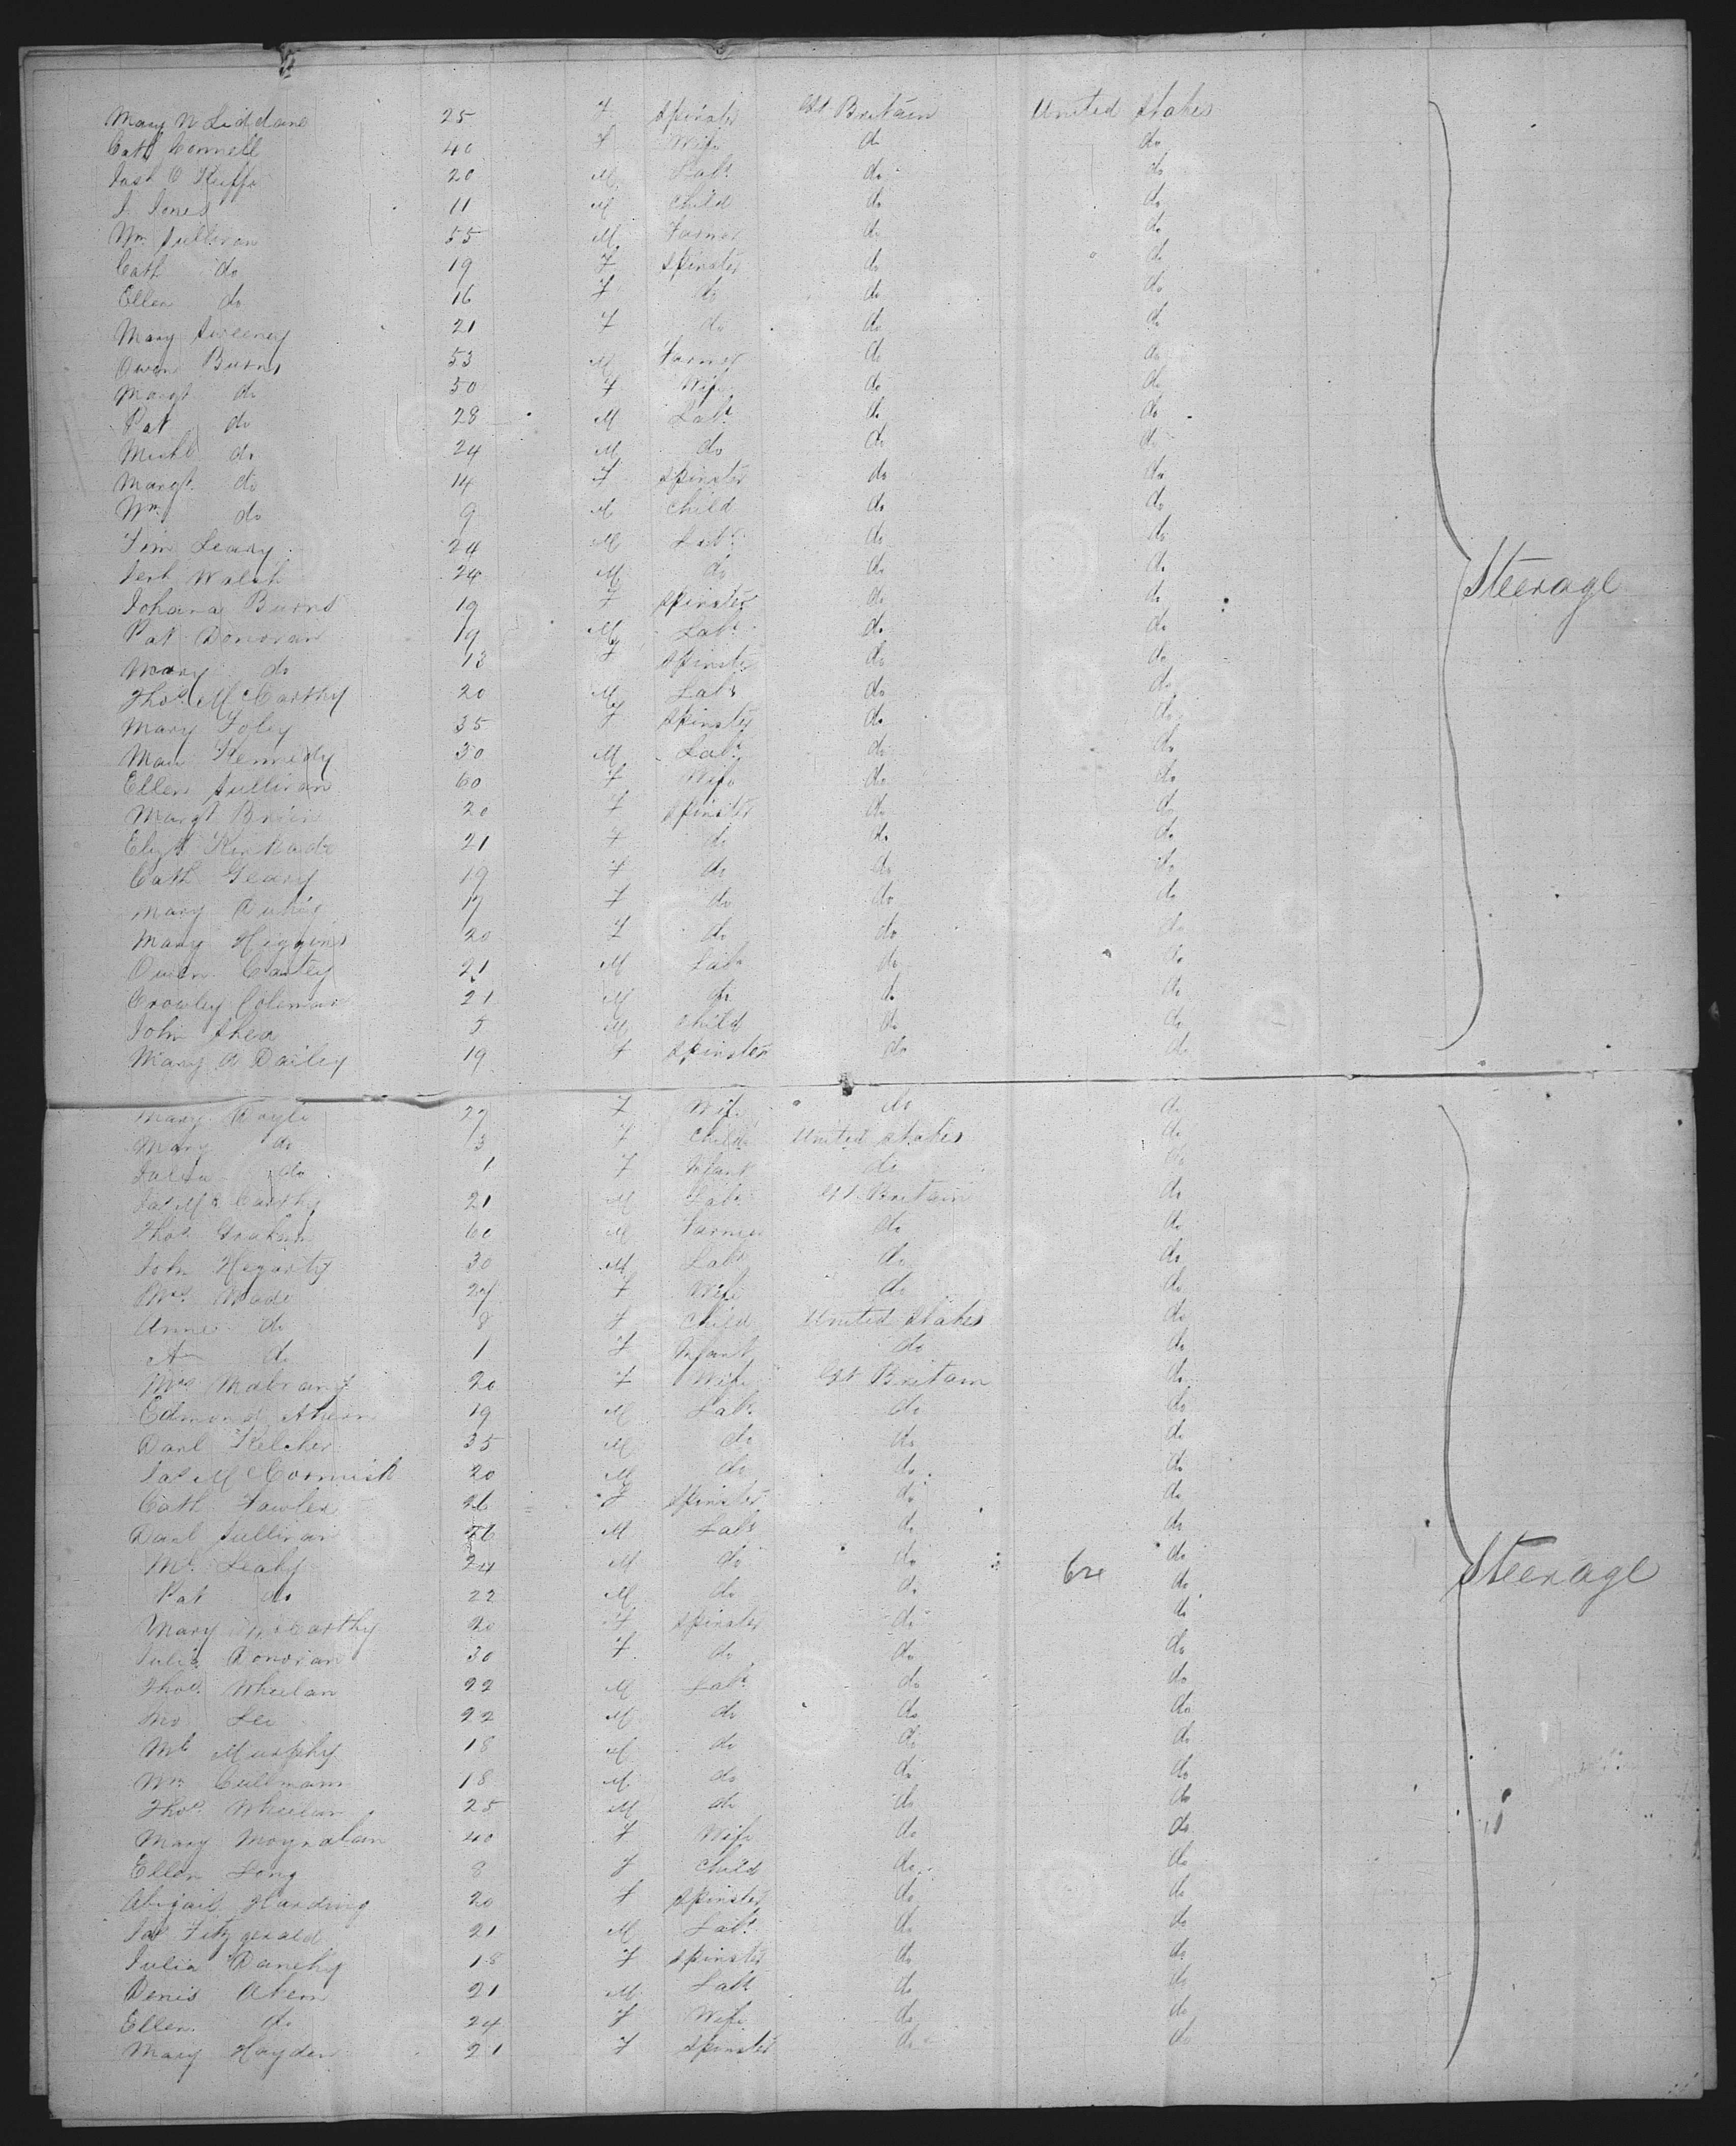 Mary Liddane 25 F Spinster Gt Britain United States
Cath Connell 40 F Wife do do
20 M Labr do do
J. Jones 11 M Child do do
Wm Sullivan 55 M Farmer do do
Cath do 19 F Spinster do do
Ellen do 16 F do do do
Mary Sweeney 21 F do do do
Owen Burns 53 M Farmer do do
Margt do 50 F Wife do do
Pat do 28 M Labr do do
Michl do 24 M do do do
Margt do 14 F Spinster do do
Wm do 9 M Child do do
Tim Leary 24 M Labr do do
Walsh 24 M do do do
Steerage
Johana Burns 19 F Spinster do do
Pat Donovan 19 M Labr do do
Mary do 13 F Spinster do do
Thos McCarthy 20 M Labr do do
Mary Foley 35 F Spinster do do
Kennedy 30 M Labr do do
Ellen Sullivan 60 F Wife do do
Margt 20 F Spinster do do
21 F do do do
Cath Geary 19 F do do do
Mary 17 F do do do
Mary Higgins 20 F do do do
Owen 21 M Labr do do
Crowley Coleman 21 M do do do
John Shea 5 M Child do do
Mary Dailey 19 F Spinster do do
Mary Doyle 27 F Wife do do
Mary do 3 F Child United States do
do 1 F Infant do do
Jas McCarthy 21 M Labr Gt Britain do
Thos Graham 60 M Farmer do do
John Hegarty 30 M Labr do do
Mrs Wade 27 F Wife do do
Anne do F Child United States do
A do 1 F Infant do do
Mrs 20 F Wife Gt Britain do
Edmond Ahern 19 M Labr do do
Danl Kelcher 35 M do do do
Jas McCormick 20 M do do do
Cath Fowler 26 F Spinster do do
Danl Sullivan M Labr do do
Ml Leahy 24 M do do do
Steerage
Pat do 22 M do do do
Mary McCarthy 20 F Spinster do do
Julia Donovan 30 F do do do
Thos Wheelan 22 M Labr do do
Lee 22 M do do do
Ml Murphy 18 M do do do
Wm Cullinan 18 M do do do
Thos Wheelan 25 M do do do
Mary Moynahan 40 F Wife do do
Ellen Long 8 F Child do do
Abigail Harding 20 F Spinster do do
Jas Fitzgerald 21 M Labr do do
Julia Danehy 18 F Spinster do do
Denis Ahern 21 M Labr do do
Ellen do 24 F Wife do do
Mary Hayden 21 F Spinster do do